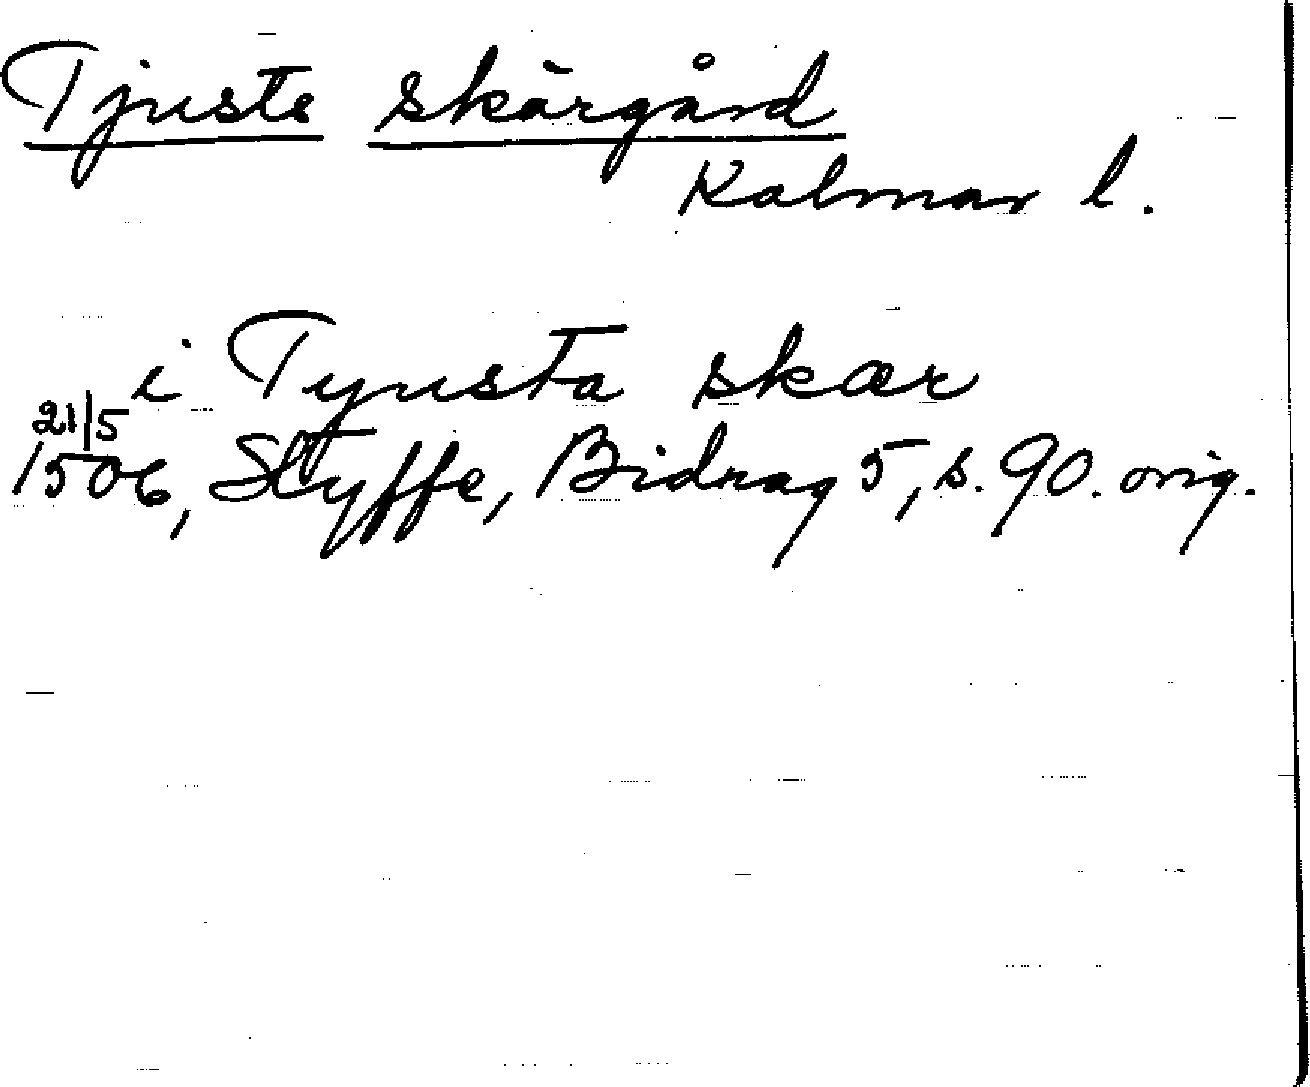 Tjusts skärgård
Kalmar l.
i Tyusta skær
21/5
1506, Styffe, Bidrag 5, s. 90. orig.